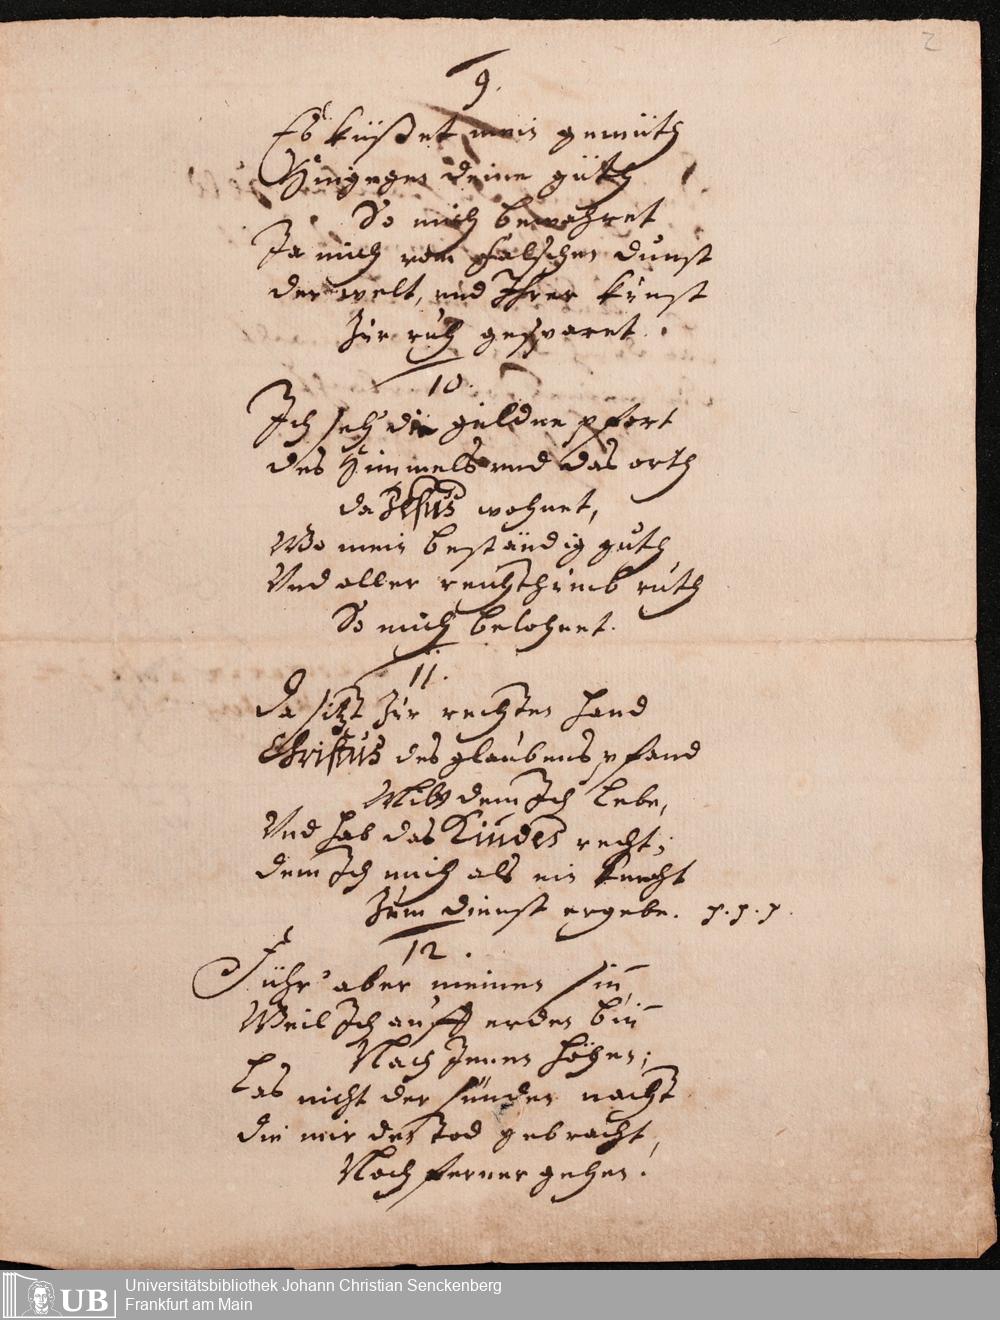 2
9.
Es küßet mein gemüth
Hingegen deine güth
So mich bewahret
Ja mich vom falschen dunst
der welt, und Ihrer kunst
Zur ruh gesparet.
10.
Ich seh' die güldne pfort
des Himmels und das orth
da Jesus wohnet,
Wo mein beständig guth
Und aller
So mich belohnet.
11.
Da sitzt Zur rechten Hand
Christus des glaubens pfand
Mitt dem Ich Lebe,
Und hab das Kindes recht;
dem Ich mich als ein knecht
Zum dienst ergebe.
12.
Führ' aber meinen sin̄
Weil Ich auff erden bin̄
Nach Jenen Höhen;
Las nicht der sünden nacht
die mir den tod gebracht,
Noch ferner gehen.
UB
Universitätsbibliothek Johann Christian Senckenberg
Frankfurt am Main